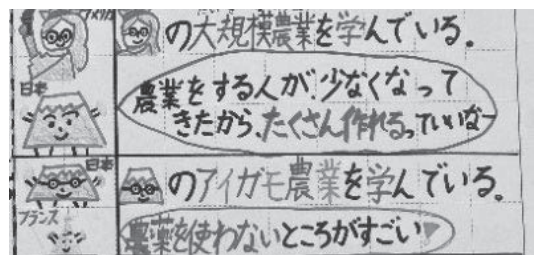 アメリカ
の大規模農業を学んでいる。
日本
農業をする人が、少なくなって
きたから、たくさん作れるっていいなー
日本
のアイガモ農業を学んでいる。
フランス
農薬を使わないところがすごい